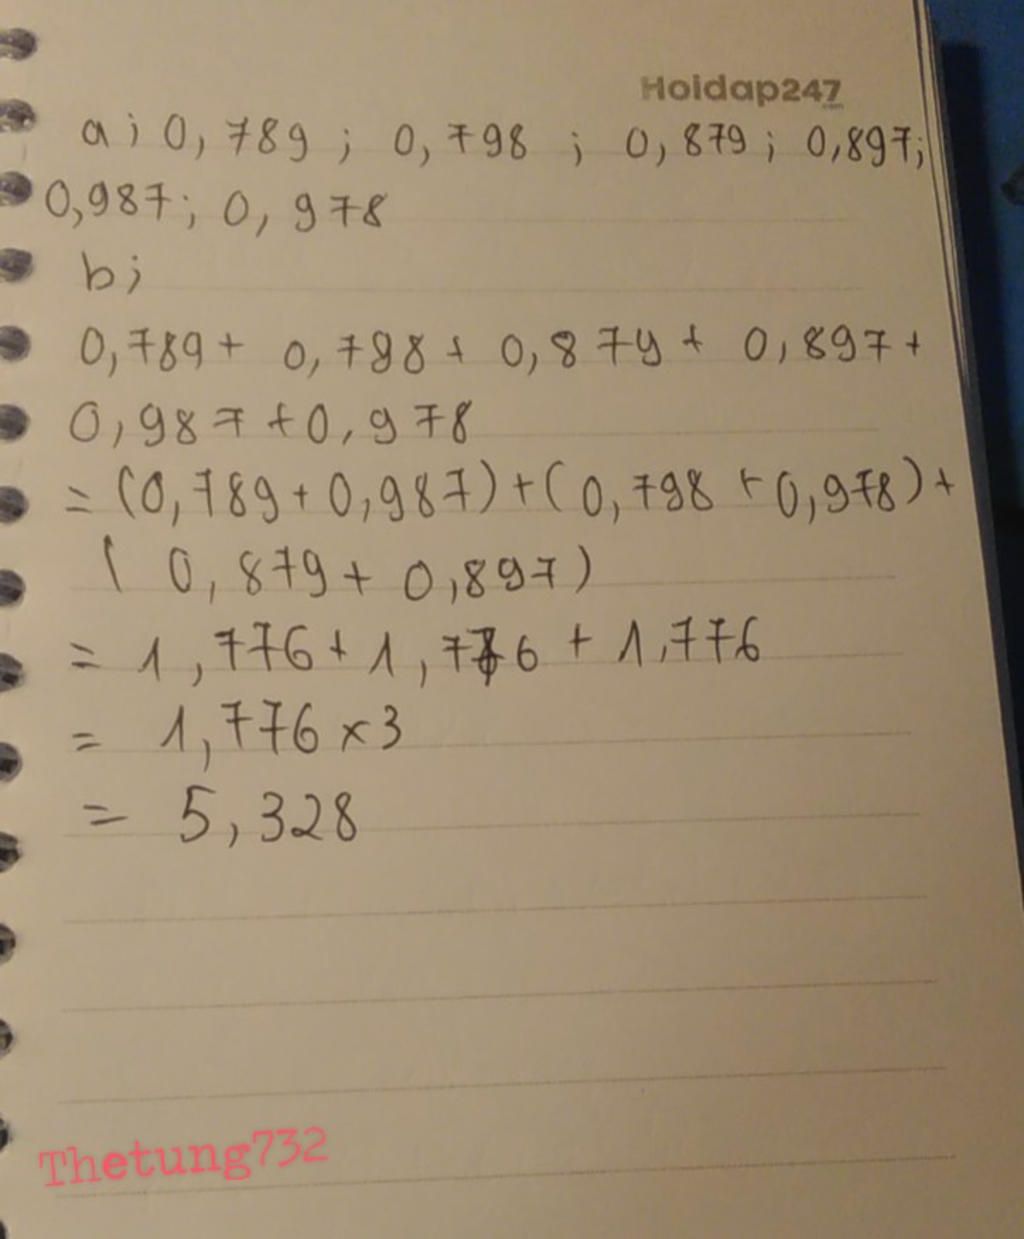 Hoidap247
.com
a; 0,789; 0,798; 0,879; 0,897;
0,987; 0,978
b;
0,789+ 0,798+ 0,879+ 0,897+
0,987+0,978
=(0,789+0,987)+(0,798+0,978)+
(0,879+0,897)
= 1,776+1,776+1,776
= 1,776×3
= 5,328
Thetung732